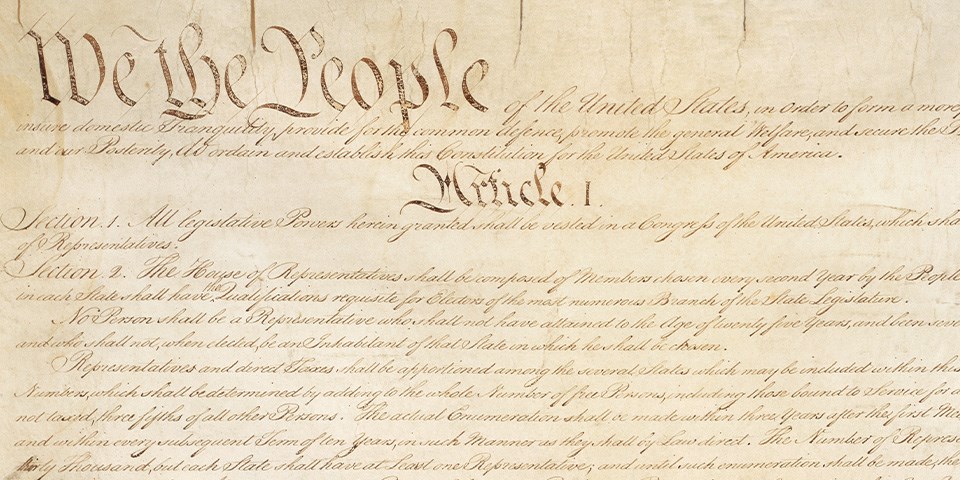 We the People of the United States, in Order to form a more
insure domestic Tranquility, provide for the common defence, promote the general Welfare, and secure the
and our Posterity, do ordain and establish this Constitution for the United States of America.
Article. I.
Section. 1. All legislative Powers herein granted shall be vested in a Congress of the United States, which sha
of Representatives.
Section. 2. The House of Representatives shall be composed of Members chosen every second Year by the Peop
in each State shall have the Qualifications requisite for Electors of the most numerous Branch of the State Legislature.
No Person shall be a Representative who shall not have attained to the Age of twenty five Years, and been seve
and who shall not, when elected, be an Inhabitant of that State in which he shall be chosen.
Representatives and direct Taxes shall be apportioned among the several States which may be included within this
Numbers, which shall be determined by adding to the whole Number of free Persons, including those bound to Service for a
not taxed, three fifths of all other Persons. The actual Enumeration shall be made within three Years after the first Me
and within every subsequent Term of ten Years, in such Manner as they shall by Law direct. The Number of Represe
thirty Thousand, but each State shall have at Least one Representative; and until such enumeration shall be made, the